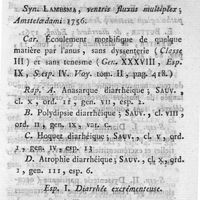 Syn. LAMESMA, ventris fluxus multiplex;
Amstelædami 1756.
Car. Écoulement morbifique de quelque
matière par l'anus, sans dyssenterie (Classe
III) et sans tenesme (Gen. XXXVIII, Esp.
IX, S.esp. IV. Voy. tom. II, pag. 418.)
Rap. A. Anasarque diarrhéique; SAUV.,
cl. X, ord. II, gen. VII, esp. 2.
B. Polydipsie diarrhéique; SAUV., cl. VIII,
ord. II, gen. IX, var. C.
C. Hoquet diarrhéique; SAUV., cl. V, ord.
2, gen. IV, esp. 13
D. Atrophie diarrhéique; SAUV., cl. X, ord.
1, gen. III, esp. 6.
Esp. I. Diarrhée excrémenteuse.